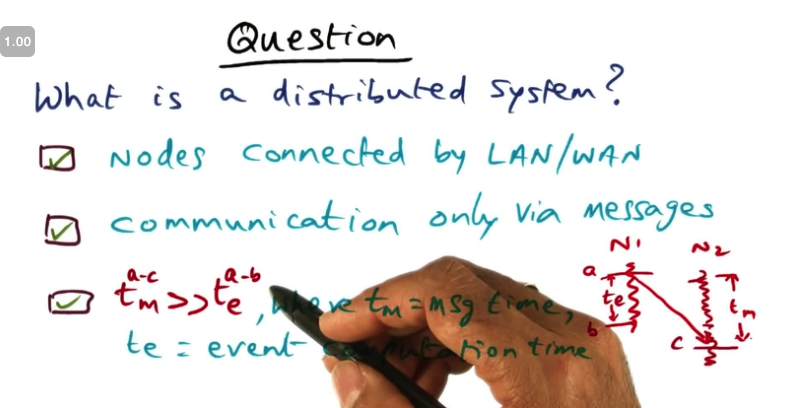 1.00
Question
What is a distributed system?
Nodes connected by LAN/WAN
communication only via messages
a-c a-b
tm >> te, where tm = msg time,
te = event computation time
N1 N2
a
te
tm
b
c